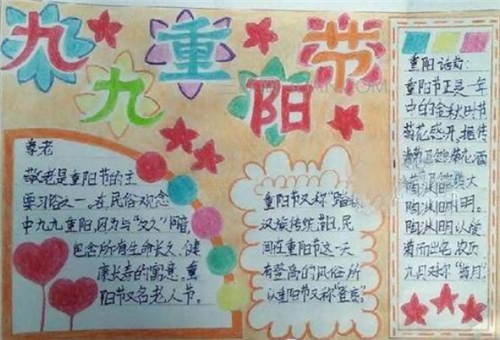 九九重阳节
尊老
敬老是重阳节的主
学习论之一，在民俗观念
中九九重阳，因为与“久久”同音，
包含所有生命长久、健
康长寿的寓意，重
阳节又名老人节。
重阳节又称“踏秋
汉族传统节日，民
间在重阳节这一天
有登高的风俗所
以重阳节又称“登高”。
重阳话菊：
重阳节正是一年
中的金秋时节
菊花盛开，据传
赏菊及饮菊花酒
陶渊明
陶渊明以爱
菊而出名，农历
九月又称“菊月”。